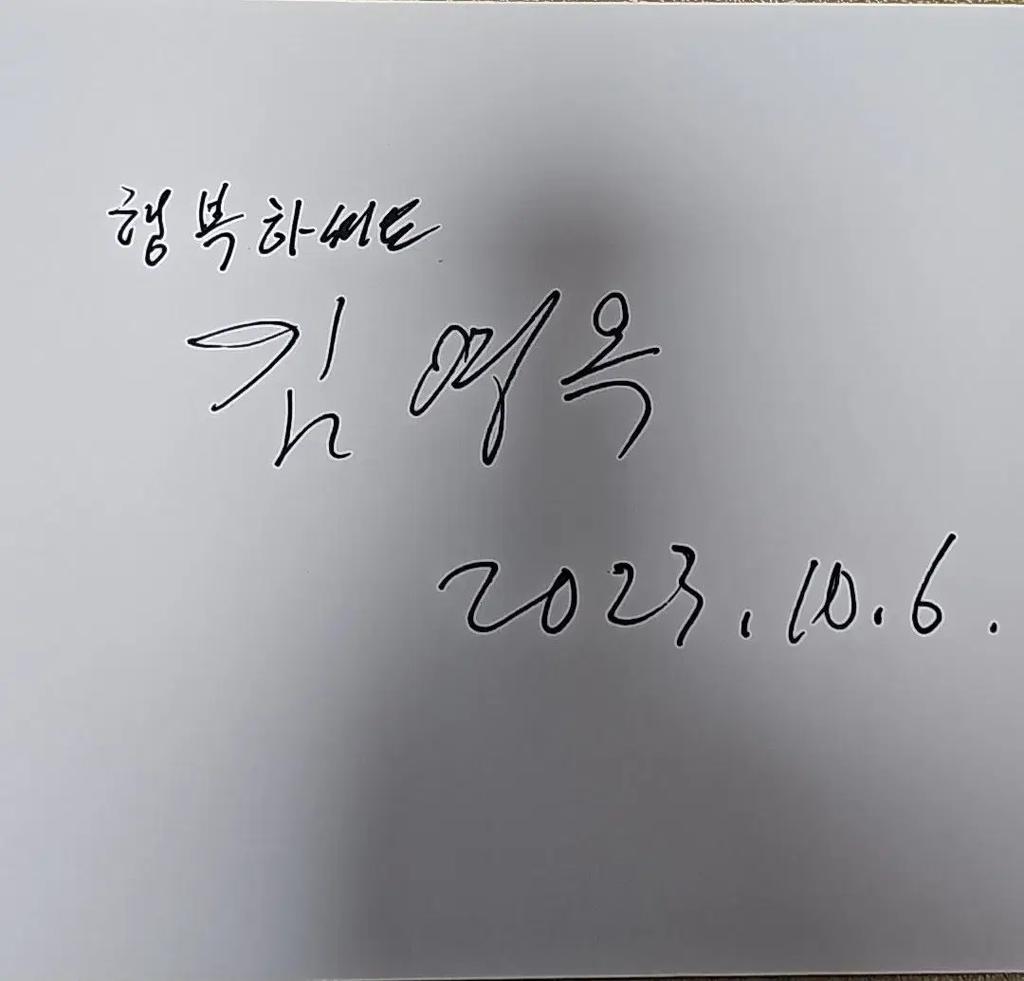 행복하세요
김영옥
2023.10.6.